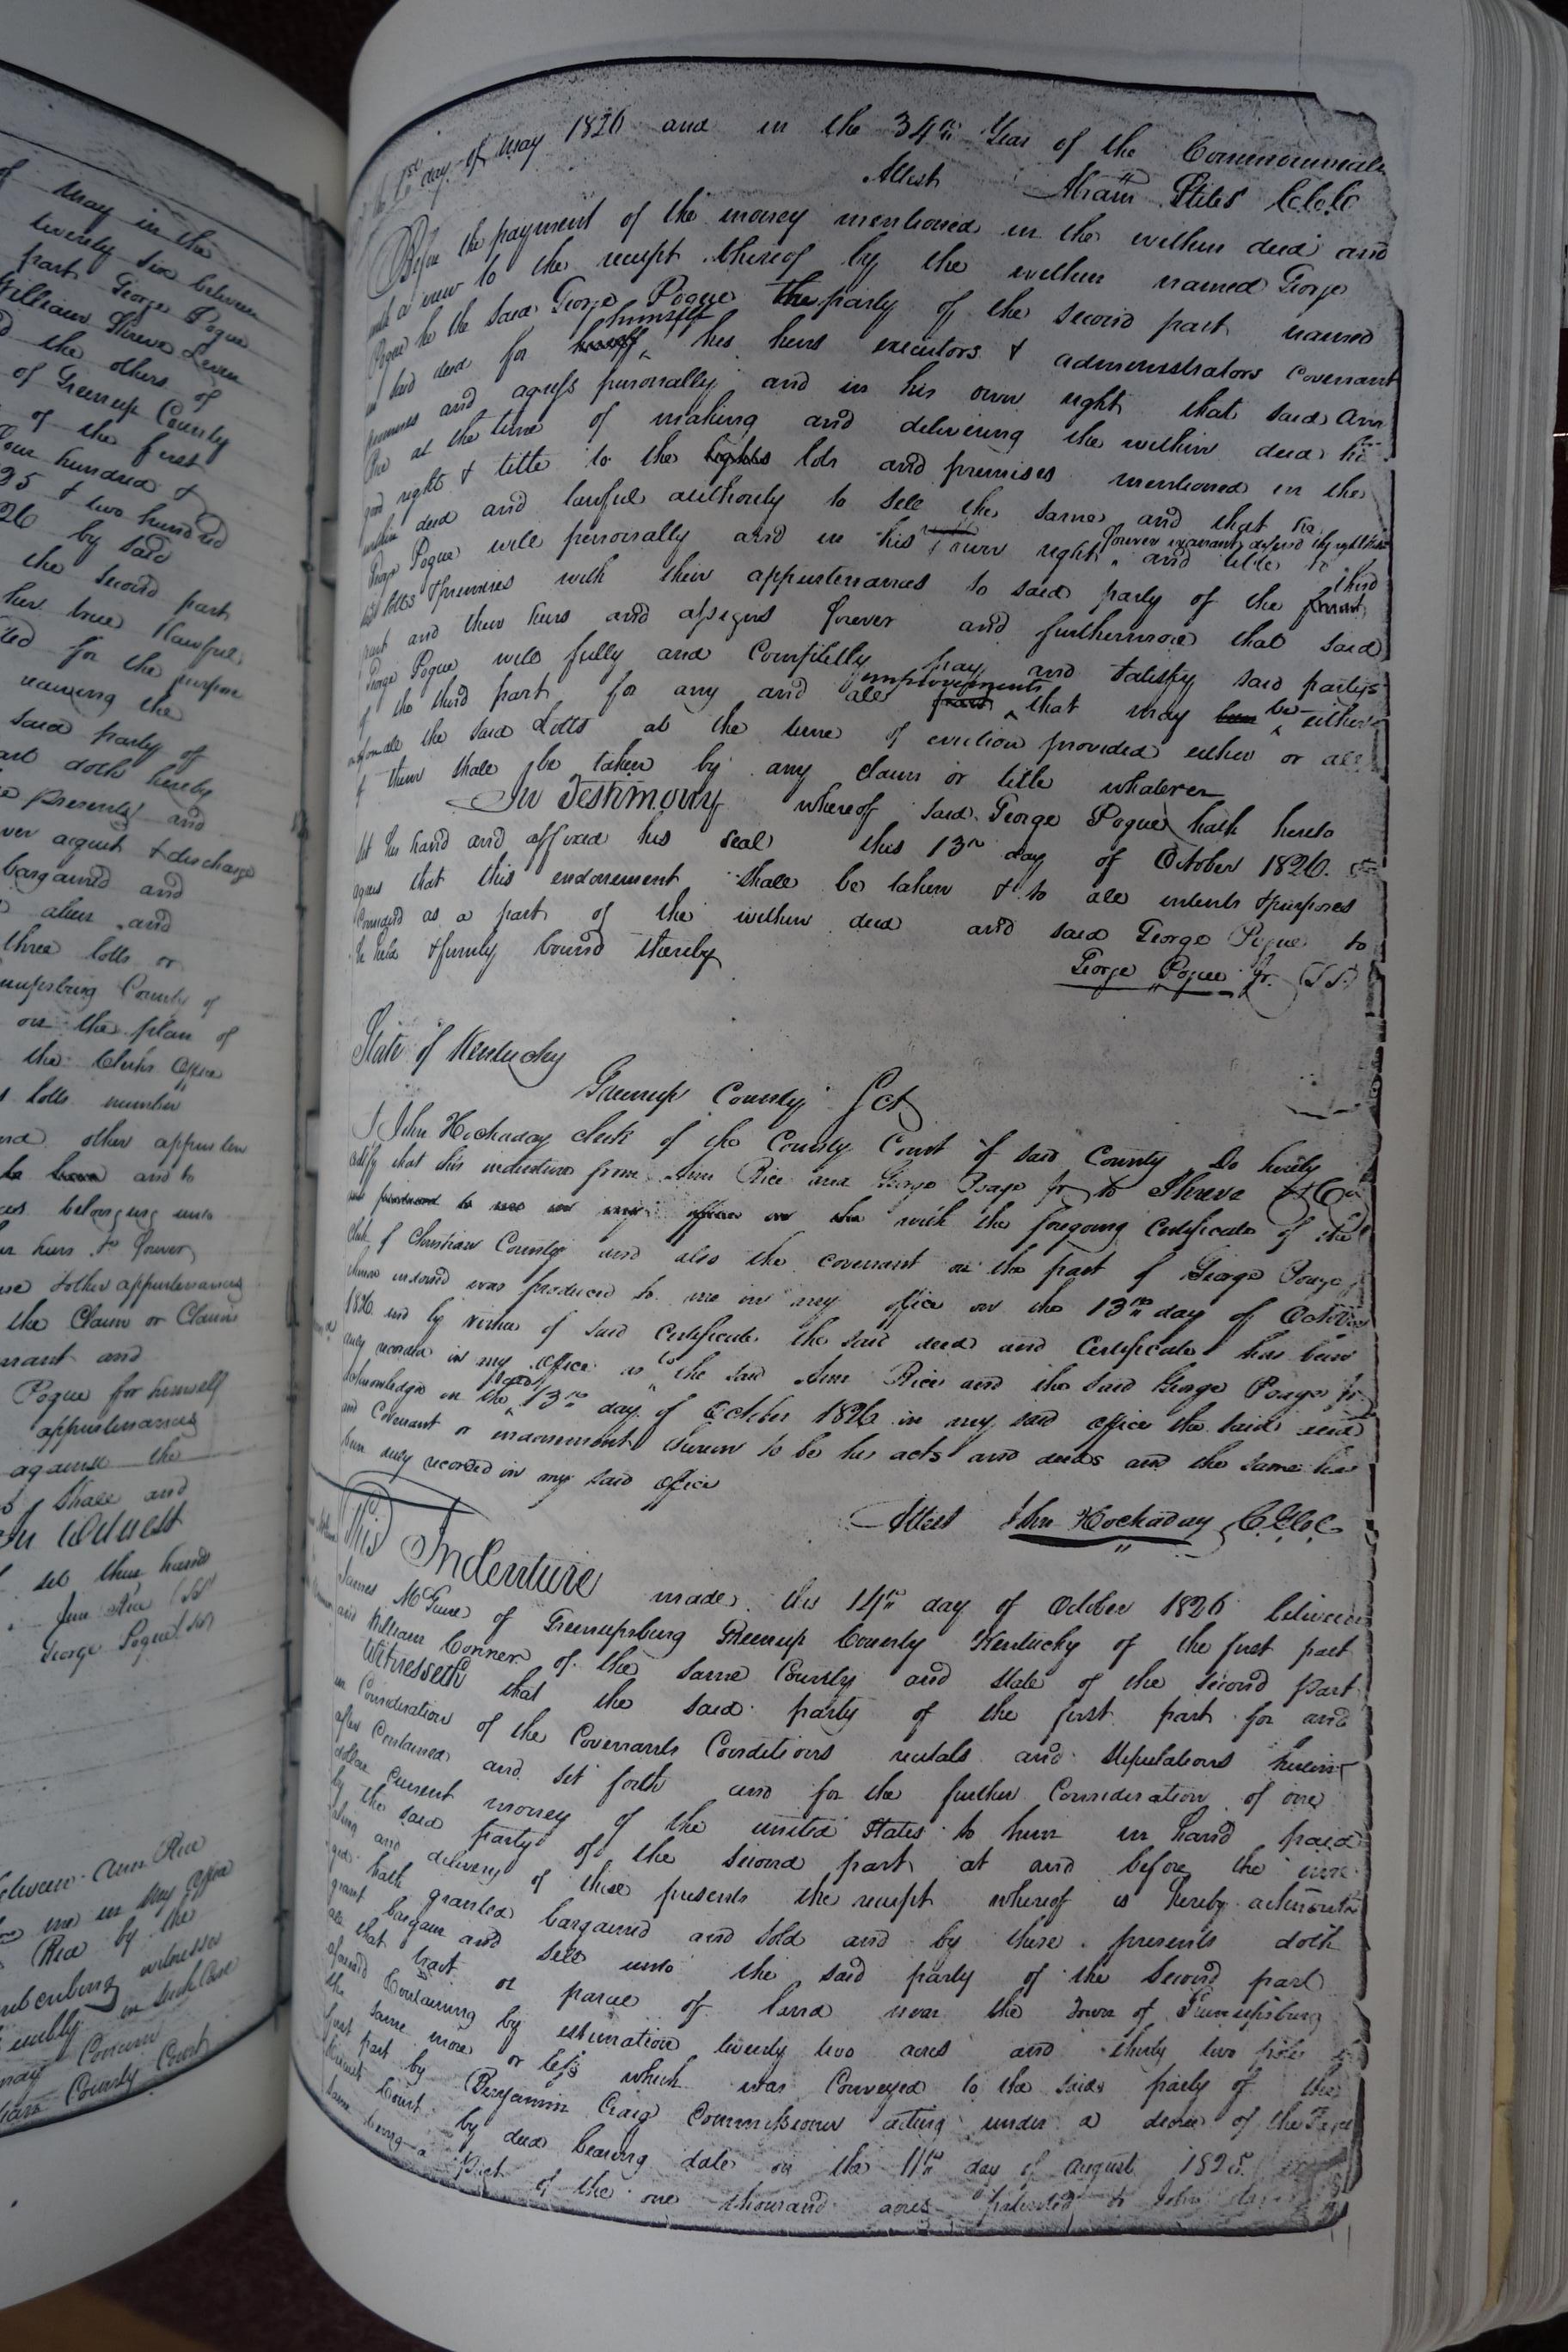 of May in the
twenty six between
part George Pogue
William Shreve Leven
the others of
of Greenup County
of the first
four hundred &
35 & two hundred
26 by said
the second part
her true & lawful
for the purpose
said party of
part doth hereby
presents and
ver acquit & discharge
bargained and
alien and
three lotts or
County of
on the plan of
the Clerks Office
lotts number
and other appurten
and to
belonging unto
heirs &c forever
& other appurtenances
the Claim or Claims
warrant and
Pogue for himself
appurtenances
against the
shall and
In Witness
set their hands
Ann Rice (SS)
George Pogue (SS)
between Ann Rice
me in my office
Rice by the
subscribing witnesses
in such Case
may Concern
County Court
the 1st day of May 1826 and in the 34th Year of the Commonwealth
Attest Abram Stites C.C.C.C
Before the payment of the money mentioned in the within deed and
with a view to the receipt thereof by the within named George
Pogue he the said George Pogue the party of the second part named
in said deed for himself his heirs executors & administrators covenant
promises and agrefs personally and in his own right that said Ann
Rice at the time of making and delivering the within deed
good right & title to the lots and premises mentioned in the
within deed and lawful authority to sell the same and that he
George Pogue will personally and in his own right forever warrant & defend the right and title to
lotts & premises with their appurtenances to said party of the third
part and their heirs and afsigns forever and furthermore that said
George Pogue will fully and Compleatly pay and satisfy said partys
of the third part for any and all improvements that may be either
the said Lotts at the time of eviction provided either or all
of them shall be taken by any claim or title whatever
In Testimony whereof said George Pogue hath hereto
set his hand and affixed his seal this 13th day of October 1826.
agrees that this endorsement shall be taken & to all intents & purposes
Considered as a part of the within deed and said George Pogue to
be held & firmly bound thereby
George Pogue Jr. (SS)
State of Kentucky
Greenup County Sct
I John Hockaday clerk of the County Court of said County Do hereby
certify that this indenture from Ann Rice and George Poage Jr to Shreve & Co
with the foregoing Certificate of the
clerk of Christian County and also the covenant on the part of George Pouge
thereon indorsed was produced to me in my office on the 13th day of October
1826. and by virtue of said Certificate the said deed and Certificate has been
duly recorded in my office as to the said Ann Rice and the said George Pouge Jr
acknowledged on the 13th day of October 1826 in my said office the said deed
and Covenant or indorsment thereon to be his acts and deeds and the same has
been duly recorded in my said office
Attest John Hockaday C.G.C.C.
This Indenture made this 14th day of October 1826 between
James McGuire of Greenupsburg Greenup County Kentucky of the first part
and William Conner of the same County and state of the second part
Witnesseth that the said party of the first part for and
in Consideration of the Covenants Conditions recitals and stipulations herein
after Contained and set forth and for the further Consideration of one
dollar current money of the united States to him in hand paid
by the said party of the second part at and before the
sealing and delivery of these presents the receipt whereof is hereby acknowle
ged hath granted bargained and sold and by these presents doth
grant bargain and sell unto the said party of the second part
all that tract or parcel of land near the Town of Greenupsburg
aforesaid Containing by estimation twenty two acres and thirty two poles
the same more or lefs which was Conveyed to the said party of the
first part by Benjamin Craig Commifsioner acting under a decree of the
Circuit Court by deed bearing date on the 11th day of August 1825.
same being a part of the one thousand acres patented to John